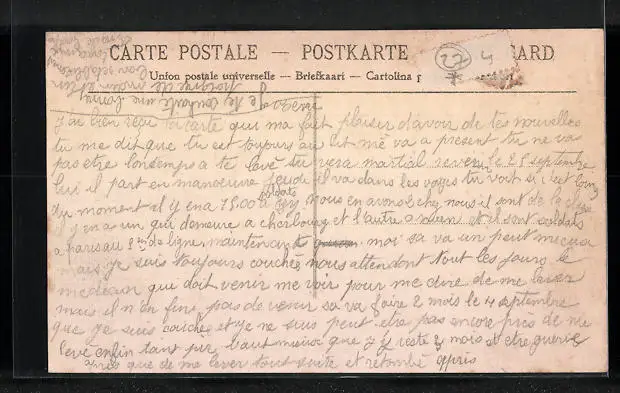 CARTE POSTALE — POSTKARTE ARD
Union postale universelle — Briefkaart — Cartolina p
22
4
je te souhaite une bonne
J'ai bien reçu ta carte qui ma fait plaisir d'avoir de tes nouvelles
tu me dit que tu est toujours au lit mé va a present tu ne va
pas etre lontemps a te levé tu vera martial revenir le 28 septembre
lui il part en manoeuvre jeudi il va dans les voges tu voit si c'est loing
du moment il y en a 7500 soldats nous en avons chez nous il sont de la
il y en a un qui demeure a cherbourg et l'autre a et il sont soldats
a paris au de ligne maintenant moi sa va un peut mieux
mais je suis toujours couchée nous attendont tout les jours le
medecin qui doit venir me voir pour me dire de me lever
mais il n'en fini pas de venir sa va faire 2 mois le 4 septembre
que je suis couchée et je ne suis peut etre pas encore près de me
levé enfin tant pir vaut mieux que j'y reste 2 mois et etre guerie
après que de me lever tout suite et retombé après